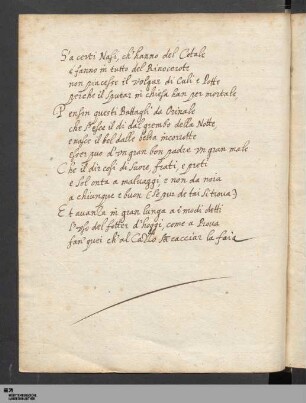 S'a certi Nasi, ch'hanno del Cotale
e fanno in tutto del Rinocerote
non piacesse il volgar di Cali e Potte
perche il sputar in chiesa han per mortale
Pensin questi Battagli da Orinale
che s'esce il dì dal grembo della Notte,
e nasce il bel dalle
esser può d'un gran bon padre un gran male
Che il dir così di Suore, frati, e preti
e sol onta a malvaggi e non da noia
a chiunque e buon (se pur de tai si trova)
Et avanza in gran lunga a i modi detti
l'uso del fottere d'hoggi, come a prova
san quei ch'al Cazzo scacciar la foia